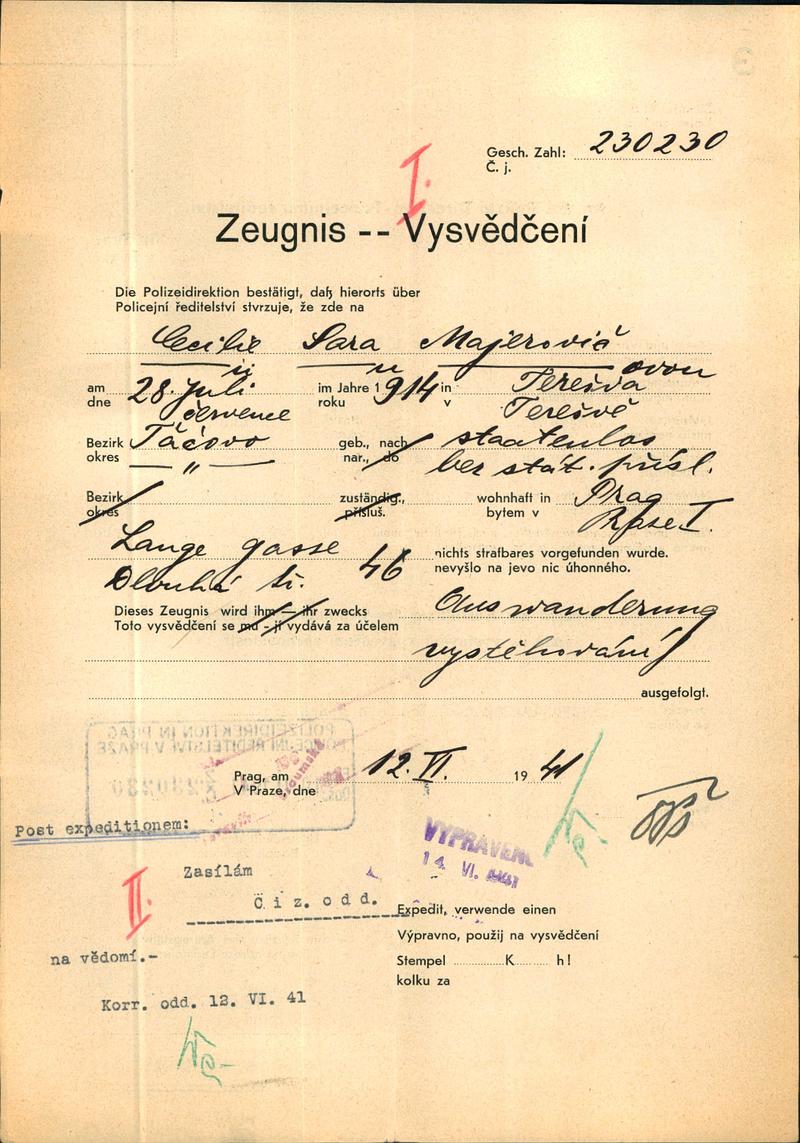 Gesch. Zahl: 230230
Č. j.
I.
Zeugnis -- Vysvědčení
Die Polizeidirektion bestätigt, daß hierorts über
Policejní ředitelství stvrzuje, že zde na
Cecilie Sara Majerovič
" " ovou
am 28. Juli im Jahre 1914 in Terešva
dne července roku v Terešvě
Bezirk Táčovo geb., nach staatenlos
okres — " — nar., do bez stát. přísl.
Bezirk zuständig., wohnhaft in Prag
okres přísluš. bytem v Praze I.
Lange gasse 46 nichts strafbares vorgefunden wurde.
Dlouhá tř. nevyšlo na jevo nic úhonného.
Dieses Zeugnis wird ihm — ihr zwecks Auswanderung
Toto vysvědčení se mu - jí vydává za účelem
vystěhování
ausgefolgt.
POLIZEIDIREKTION IN PRAG
POLICEJNÍ ŘEDITELSTVÍ V PRAZE
230230
Prag, am 12. VI. 1941
V Praze, dne
Post expeditionem:
VYPRAVENO
14. VI. 1941
II.
Zasílám
Č i z. o d d.
Expedit, verwende einen
Výpravno, použij na vysvědčení
na vědomí.-
Stempel K h!
kolku za
Korr. odd. 12. VI. 41